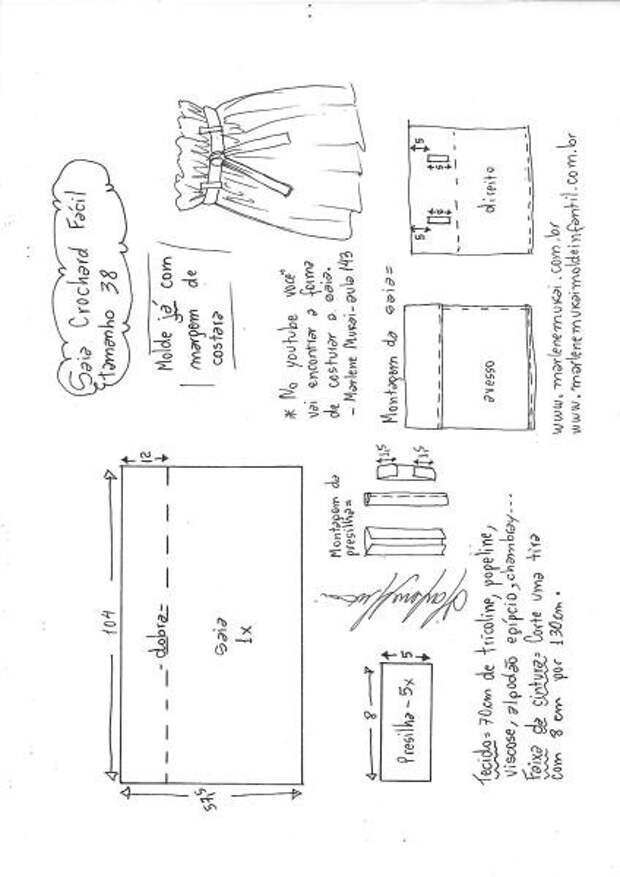 Saia Crochard Fácil
tamanho 38
Molde já com
margem de
costura
* No youtube você
vai encontrar a forma
de costurar a saia.
- Marlene Mukai - aula 143
104
12
- dobra =
saia
1x
57,5
Montagem da
presilha =
1,5
1,5
8
5
Presilha - 5x
Montagem da saia =
avesso
direito
5
5
5
5
Tecido = 70cm de tricoline, popeline,
viscose, algodão egípcio, chambray...
Faixa de cintura = Corte uma tira
com 8 cm por 130cm.
www.marlenemukai.com.br
www.marlenemukaimoldeinfantil.com.br